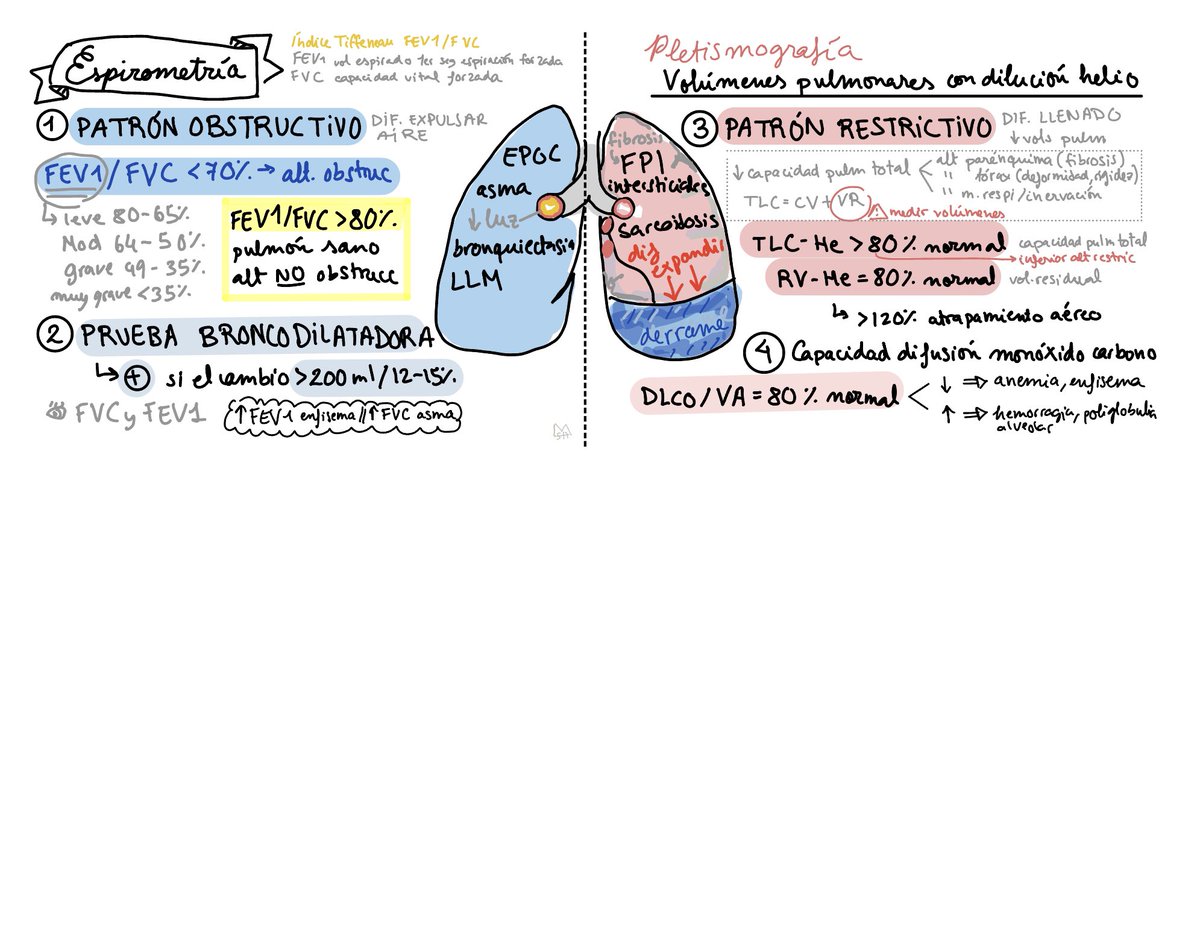 Espirometría
Índice Tiffeneau FEV1/FVC
FEV1 vol espirado 1er seg espiración forzada
FVC capacidad vital forzada
① PATRÓN OBSTRUCTIVO
DIF. EXPULSAR
AIRE
FEV1/FVC <70% → alt. obstruc
↳ leve 80-65%
Mod 64-50%
grave 49-35%
muy grave <35%
FEV1/FVC >80%
pulmón sano
alt NO obstrucc
② PRUEBA BRONCODILATADORA
↳ + si el cambio >200 ml/12-15%
FVC y FEV1
↑FEV1 enfisema//↑FVC asma
EPOC
asma
↓ luz
bronquiectasia
LLM
fibrosis
FPI
intersticiales
sarcoidosis
dif
expandir
derrame
Pletismografía
Volúmenes pulmonares con dilución helio
③ PATRÓN RESTRICTIVO
DIF. LLENADO
↓ vols pulm
↓ capacidad pulm total
alt parénquima (fibrosis)
" tórax (deformidad, rigidez)
" m. respi/inervación
TLC = CV + VR
⚠ medir volúmenes
TLC-He >80% normal
capacidad pulm total
→ inferior alt restric
RV-He = 80% normal
vol. residual
↳ >120% atrapamiento aéreo
④ Capacidad difusión monóxido carbono
DLCO/VA = 80% normal
↓ ⇒ anemia, enfisema
↑ ⇒ hemorragia, poliglobulia
alveolar